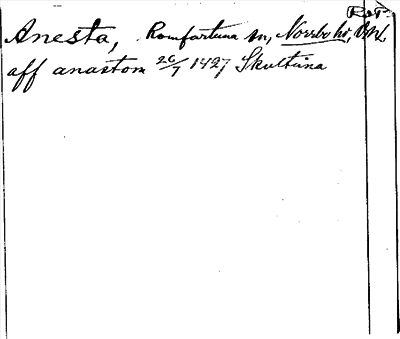 Rot.
Anesta, Romfartuna sn, Norrbo hd, Vml.
aff anastom 26/7 1427 Skultuna